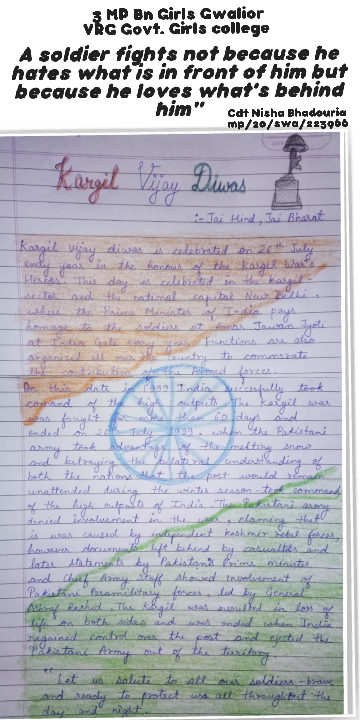 3 MP Bn Girls Gwalior
VRG Govt. Girls college
A soldier fights not because he
hates what is in front of him but
because he loves what's behind
him"
Cdt Nisha Bhadouria
mp/20/swa/223966
Kargil Vijay Diwas
:- Jai Hind, Jai Bharat
Kargil vijay diwas is celebrated on 26th July
every year in the honour of the Kargil War's
Heroes. This day is celebrated in the kargil-
sector and the national capital New Delhi,
where the Prime Minister of India pays
homage to the soldiers at Amar Jawan Jyoti
at India Gate every year. Functions are also
organized all over the country to commorate
the contribution of the Armed forces.
On this date in 1999 India succesfully took
comand of the high outputs. The Kargil war
was fought for more than 60 days and
ended on 26th July 1999, when the Pakistani
army took advantage of the melting snow
and betraying the bilateral understanding of
both the nations that the post would remain
unattended during the winter season took command
of the high outposts of India. The Pakistani army
denied involvement in the war, claiming that
is was caused by independent Kashmir rebel forces,
however documents left behind by casualties and
later statements by Pakistan's Prime minister
and Chief Army Staff showed involvement of
Pakistani Paramilitary forces, led by General
Ashraf Rashid. The kargil was resulted in loss of
life on both sides and was ended when India
regained control over the post and ejected the
Pakistani Army out of the territory.
Let us salute to all our soldiers brave
and ready to protect us all throughout the
day and night.